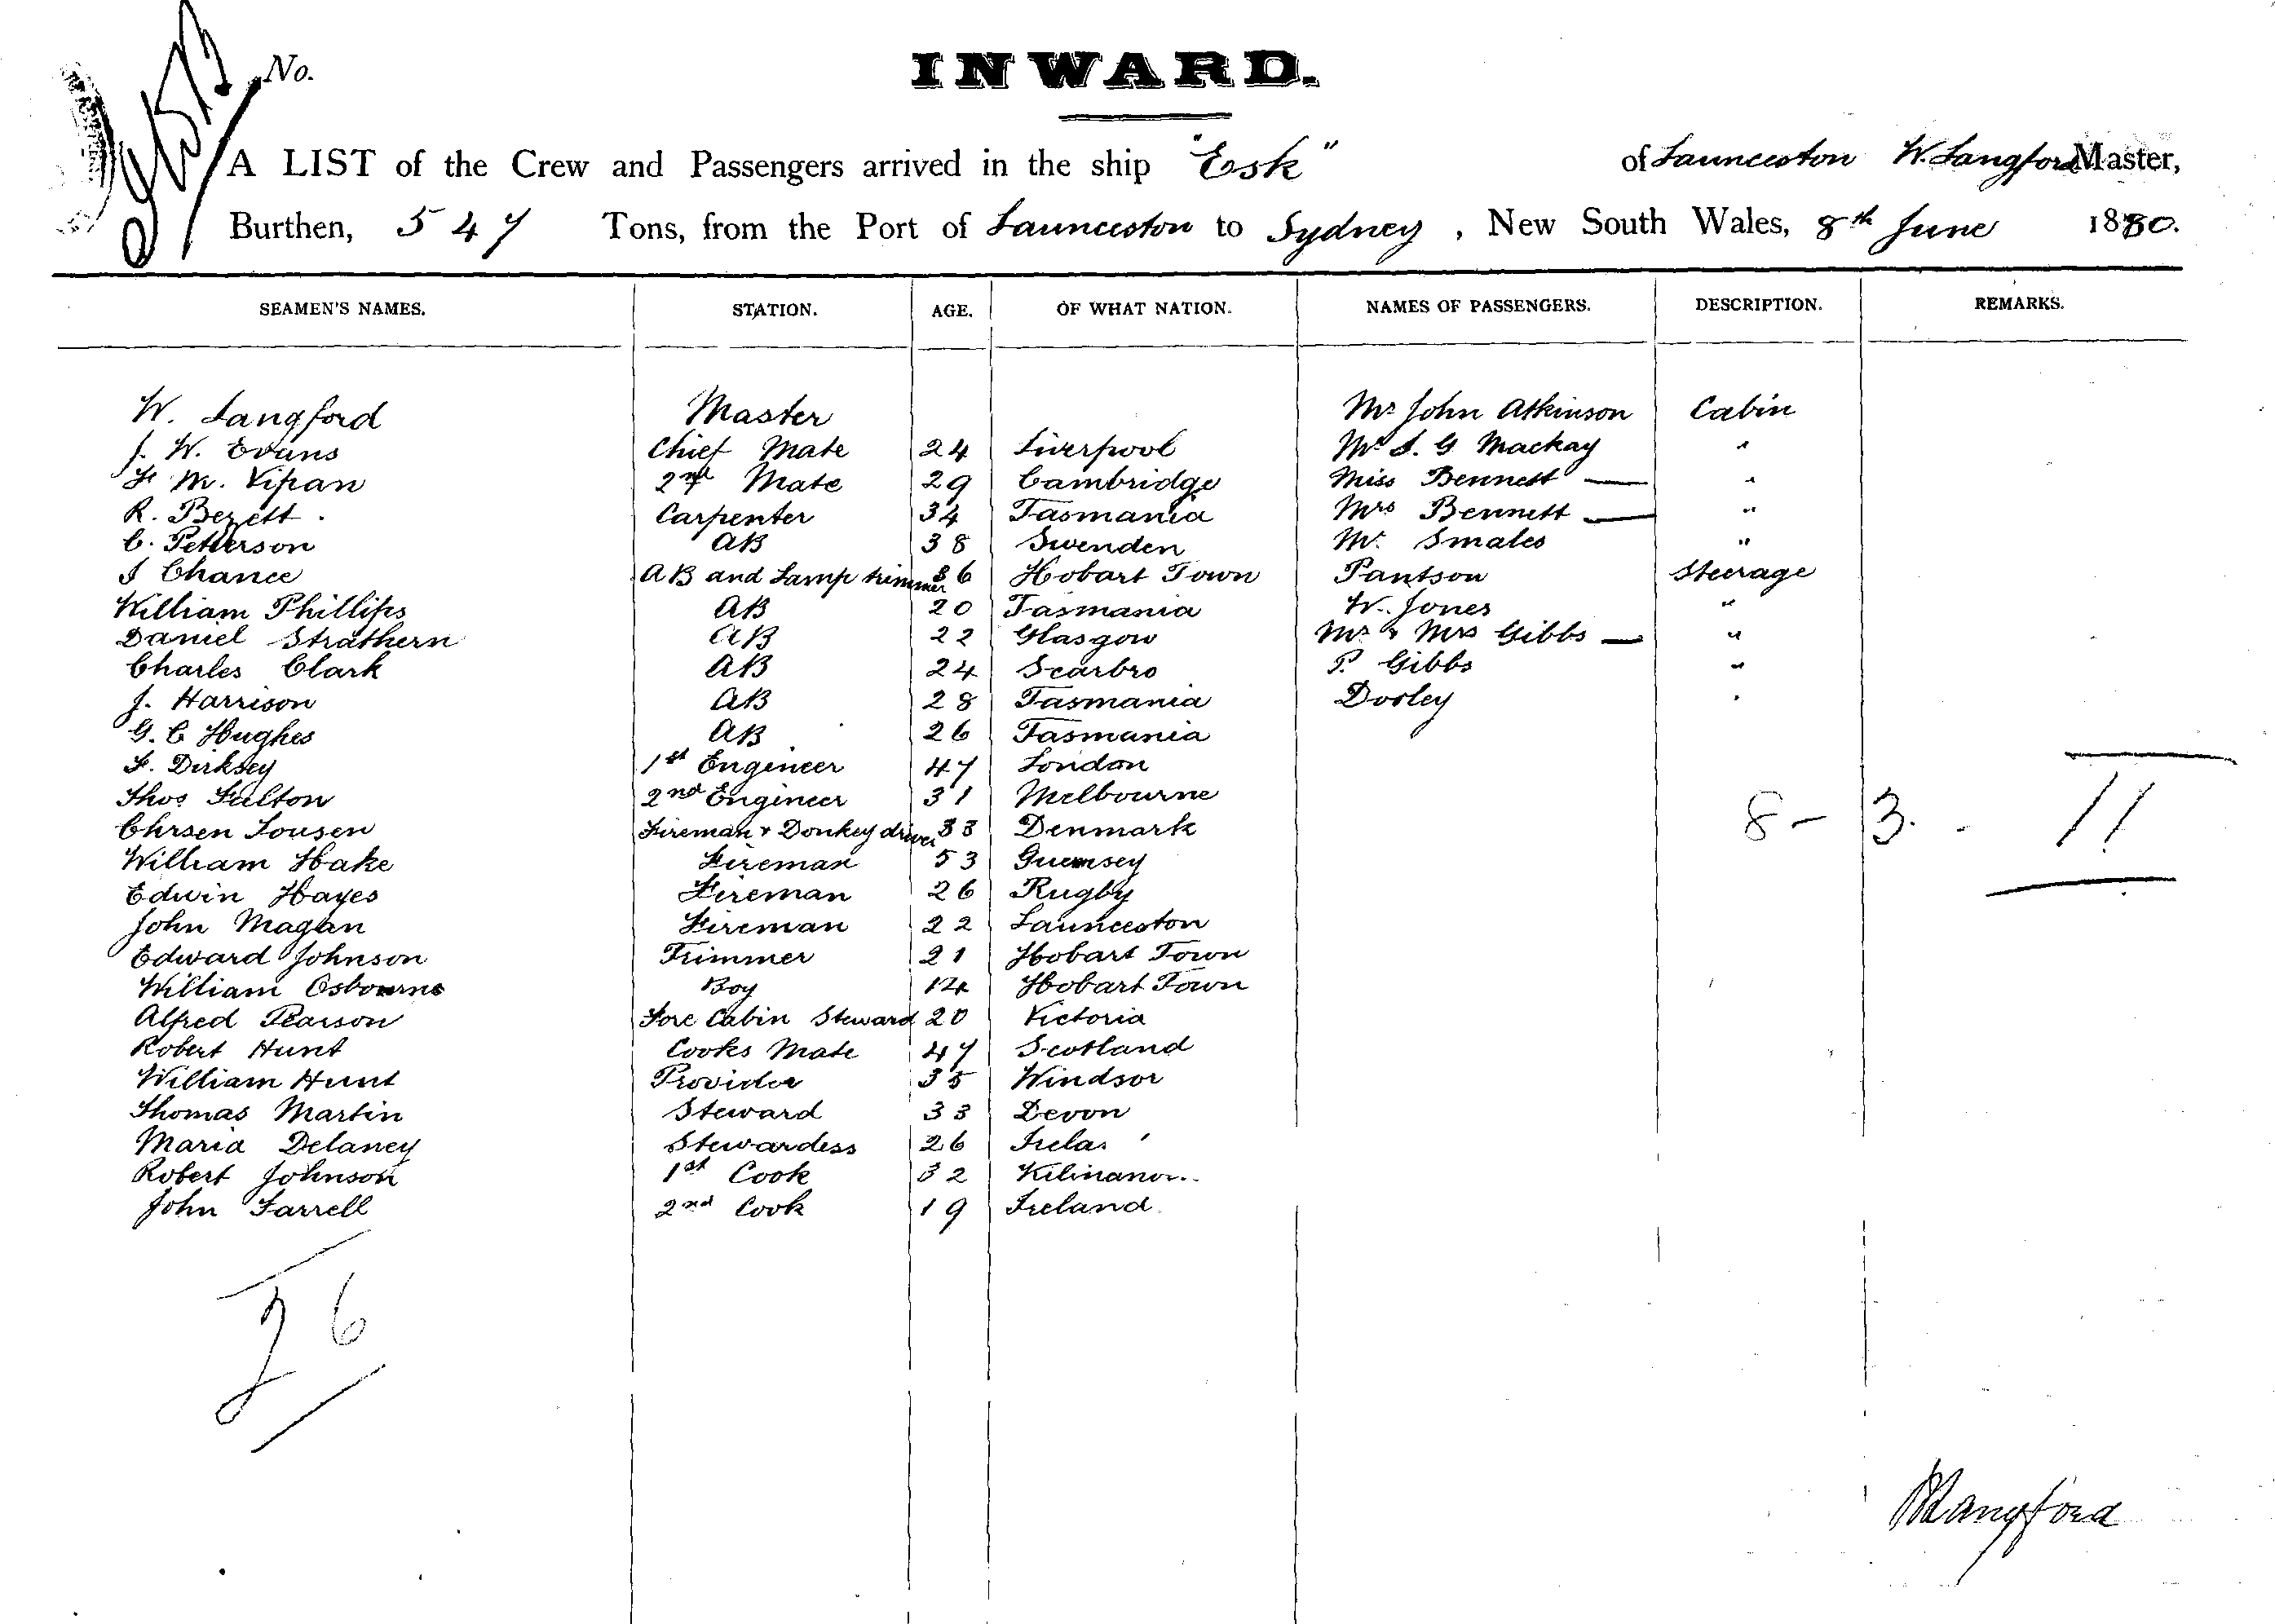 No.
INWARD.
A LIST of the Crew and Passengers arrived in the ship "Esk" of Launceston W. Langford Master,
Burthen, 547 Tons, from the Port of Launceston to Sydney, New South Wales, 8th June 1880.
SEAMEN'S NAMES. STATION. AGE. OF WHAT NATION. NAMES OF PASSENGERS. DESCRIPTION. REMARKS.
W. Langford Master Mr John Atkinson Cabin
J. W. Evans Chief Mate 24 Liverpool Mr S. G Mackay "
F. M. Vipan 2nd Mate 29 Cambridge Miss Bennett — "
R. Bezett. Carpenter 34 Tasmania Mrs Bennett — "
C. Petterson AB 38 Swenden Mr. Smales "
J Chance AB and Lamp trimmer 36 Hobart Town Pantson Steerage
William Phillips AB 20 Tasmania W. Jones "
Daniel Strathern AB 22 Glasgow Mr & Mrs Gibbs — "
Charles Clark AB 24 Scarbro P. Gibbs "
J. Harrison AB 28 Tasmania Dorley "
G. C Hughes AB 26 Tasmania
F. Dirksey 1st Engineer 47 London
Thos Fulton 2nd Engineer 31 Melbourne
Chrsen Lousen Fireman & Donkey driver 33 Denmark 8 - 3. - 11
William Hake Fireman 53 Guernsey
Edwin Hayes Fireman 26 Rugby
John Magan Fireman 22 Launceston
Edward Johnson Trimmer 21 Hobart Town
William Osbourne Boy 14 Hobart Town
Alfred Pearson Fore Cabin Steward 20 Victoria
Robert Hunt Cooks Mate 47 Scotland
William Hunt Providor 35 Windsor
Thomas Martin Steward 33 Devon
Maria Delaney Stewardess 26 Irela
Robert Johnson 1st Cook 32
John Farrell 2nd Cook 19 Ireland.
26
WLangford